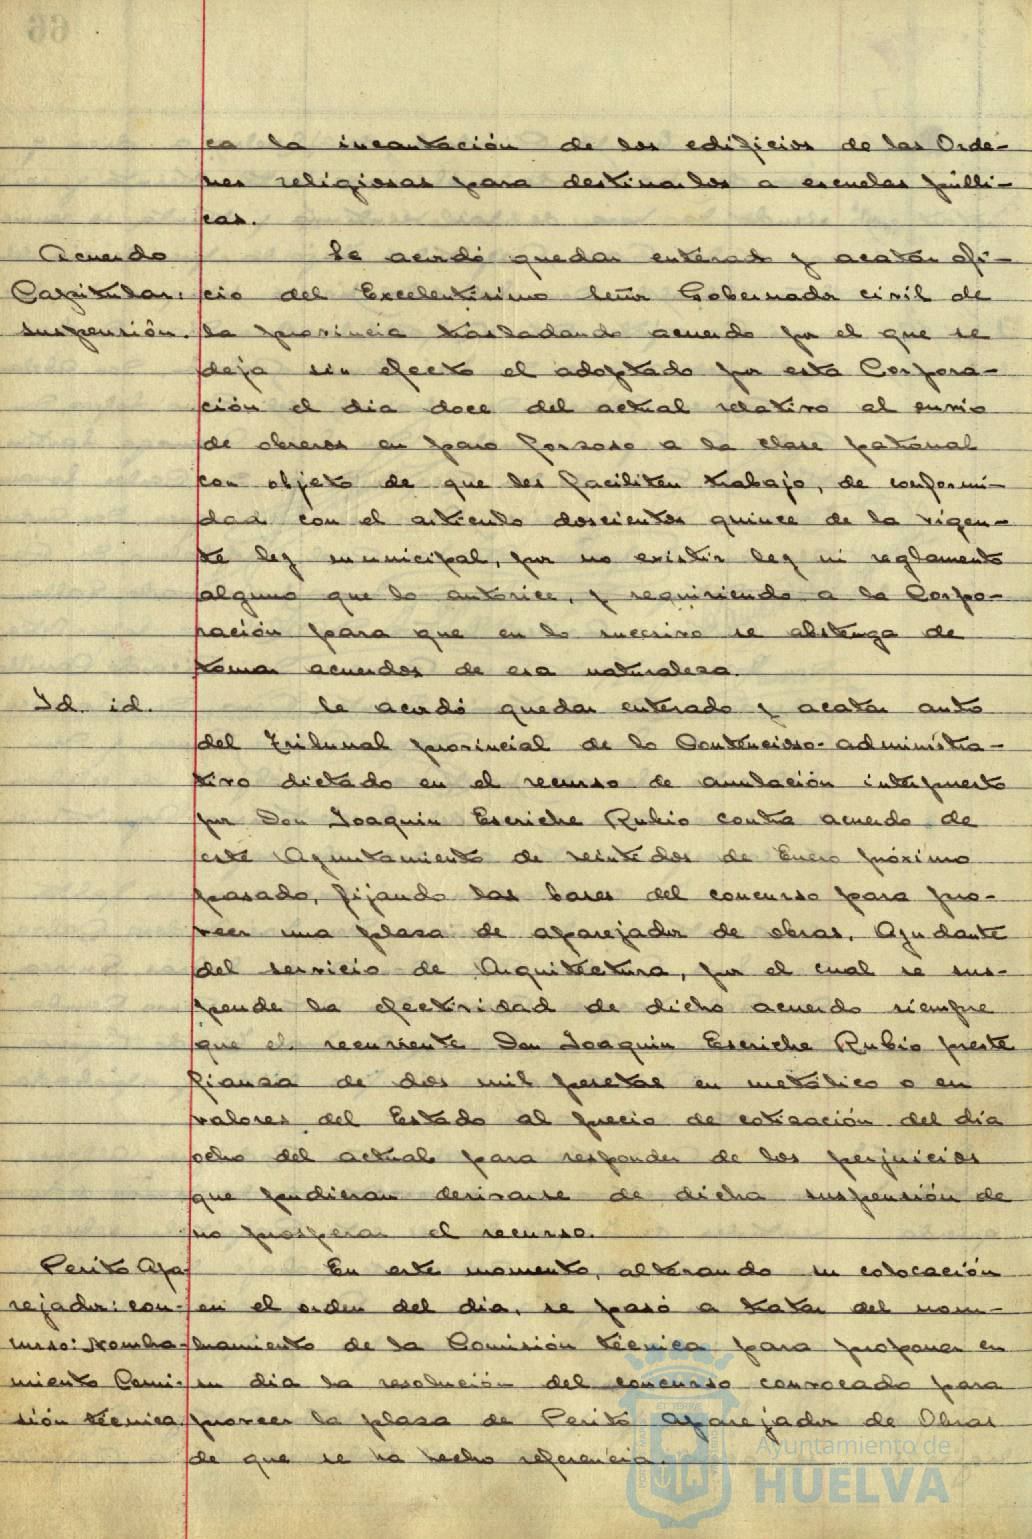 66
ca la incautación de los edificios de las Orde-
nes religiosas para destinarlos a escuelas públi-
cas.
Acuerdo Se acordó quedar enterado y acatar ofi-
Capitular: cio del Excelentísimo Señor Gobernador civil de
suspensión. la provincia trasladando acuerdo por el que se
deja sin efecto el adoptado por esta Corpora-
ción el dia doce del actual relativo al envio
de obreros en paro forzoso a la clase patronal
con objeto de que les faciliten trabajo, de conformi-
dad con el artículo doscientos quince de la vigen-
te ley municipal, por no existir ley ni reglamento
alguno que lo autorice, y requiriendo a la Corpo-
ración para que en lo sucesivo se abstenga de
tomar acuerdos de esa naturaleza.
Id. id. Se acordó quedar enterado y acatar auto
del Tribunal provincial de lo Contencioso-administra-
tivo dictado en el recurso de anulación interpuesto
por Don Joaquin Escriche Rubio contra acuerdo de
este Ayuntamiento de veintidos de Enero próximo
pasado, fijando las bases del concurso para pro-
veer una plaza de aparejador de obras, Ayudante
del servicio de Arquitectura, por el cual se sus-
pende la efectividad de dicho acuerdo siempre
que el recurrente Don Joaquin Escriche Rubio preste
fianza de dos mil pesetas en metálico o en
valores del Estado al precio de cotización del dia
ocho del actual para responder de los perjuicios
que pudieran derivarse de dicha suspensión de
no prosperar el recurso.
Perito Apa- En este momento, alterando su colocación
rejador: con- en el orden del dia, se pasó a tratar del nom-
curso: Nombra- bramiento de la Comisión técnica para proponer en
miento Comi- su dia la resolución del concurso convocado para
sión técnica. proveer la plaza de Perito aparejador de Obras
de que se ha hecho referencia.
Ayuntamiento de
HUELVA